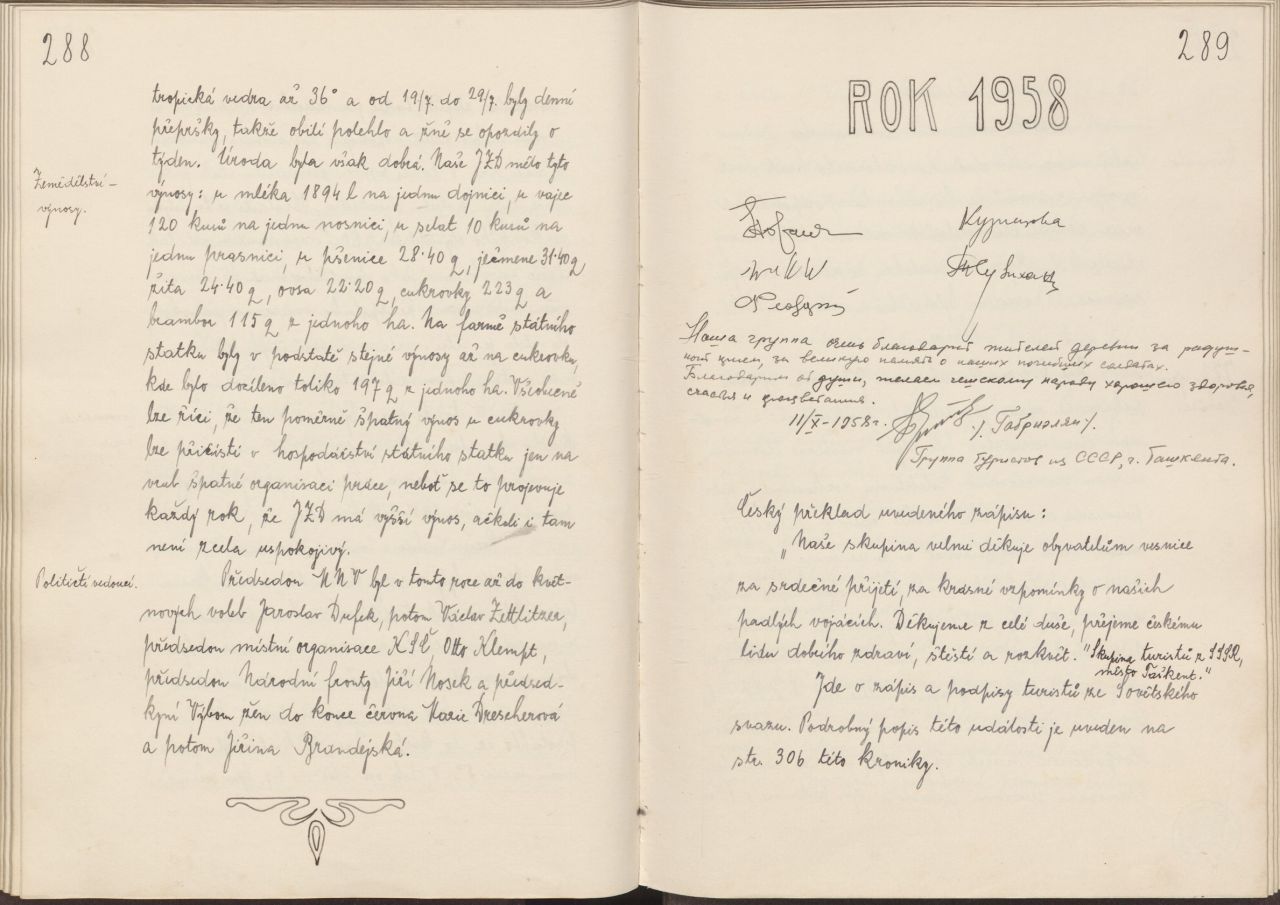 288
tropická vedra až 36° a od 19/7. do 29/7. byly denní
přepršky, takže obilí polehlo a žně se opozdily o
týden. Úroda byla však dobrá. Naše JZD mělo tyto
Zemědělství –
výnosy.
výnosy: u mléka 1894 l na jednu dojnici, u vajec
120 kusů na jednu nosnici, u selat 10 kusů na
jednu prasnici, u pšenice 28·40 q, ječmene 31·40 q,
žita 24·40 q, ovsa 22·20 q, cukrovky 223 q a
brambor 115 q z jednoho ha. Na farmě státního
statku byly v podstatě stejné výnosy až na cukrovku,
kde bylo docíleno toliko 197 q z jednoho ha. Všeobecně
lze říci, že ten poměrně špatný výnos u cukrovky
lze přičísti v hospodářství státního statku jen na
vrub špatné organisaci práce, neboť se to projevuje
každý rok, že JZD má vyšší výnos, ačkoli i tam
není zcela uspokojivý.
Političtí vedoucí.
Předsedou MNV byl v tomto roce až do květ-
nových voleb Jaroslav Dufek, potom Václav Zettlitzer,
předsedou místní organisace KSČ, Otto Klempt,
předsedou Národní fronty Jiří Mosek a předsed-
kyní Výboru žen do konce června Marie Drescherová
a potom Jiřina Brandejská.
289
ROK 1958
Кузнецова
Наша группа очень благодарит жителей деревни за радуш-
ный прием, за великую память о наших погибших солдатах.
Благодарим от души, желаем чешскому народу хорошего здоровья,
счастья и процветания.
11/X–1958 г. /Габриэлян/.
Группа туристов из СССР, г. Ташкента.
Český překlad uvedeného zápisu:
„Naše skupina velmi děkuje obyvatelům vesnice
za srdečné přijetí, za krásné vzpomínky o našich
padlých vojácích. Děkujeme z celé duše, přejeme českému
lidu dobrého zdraví, štěstí a rozkvět." Skupina turistů z SSSR,
město Taškent."
Jde o zápis a podpisy turistů ze Sovětského
svazu. Podrobný popis této události je uveden na
str. 306 této kroniky.